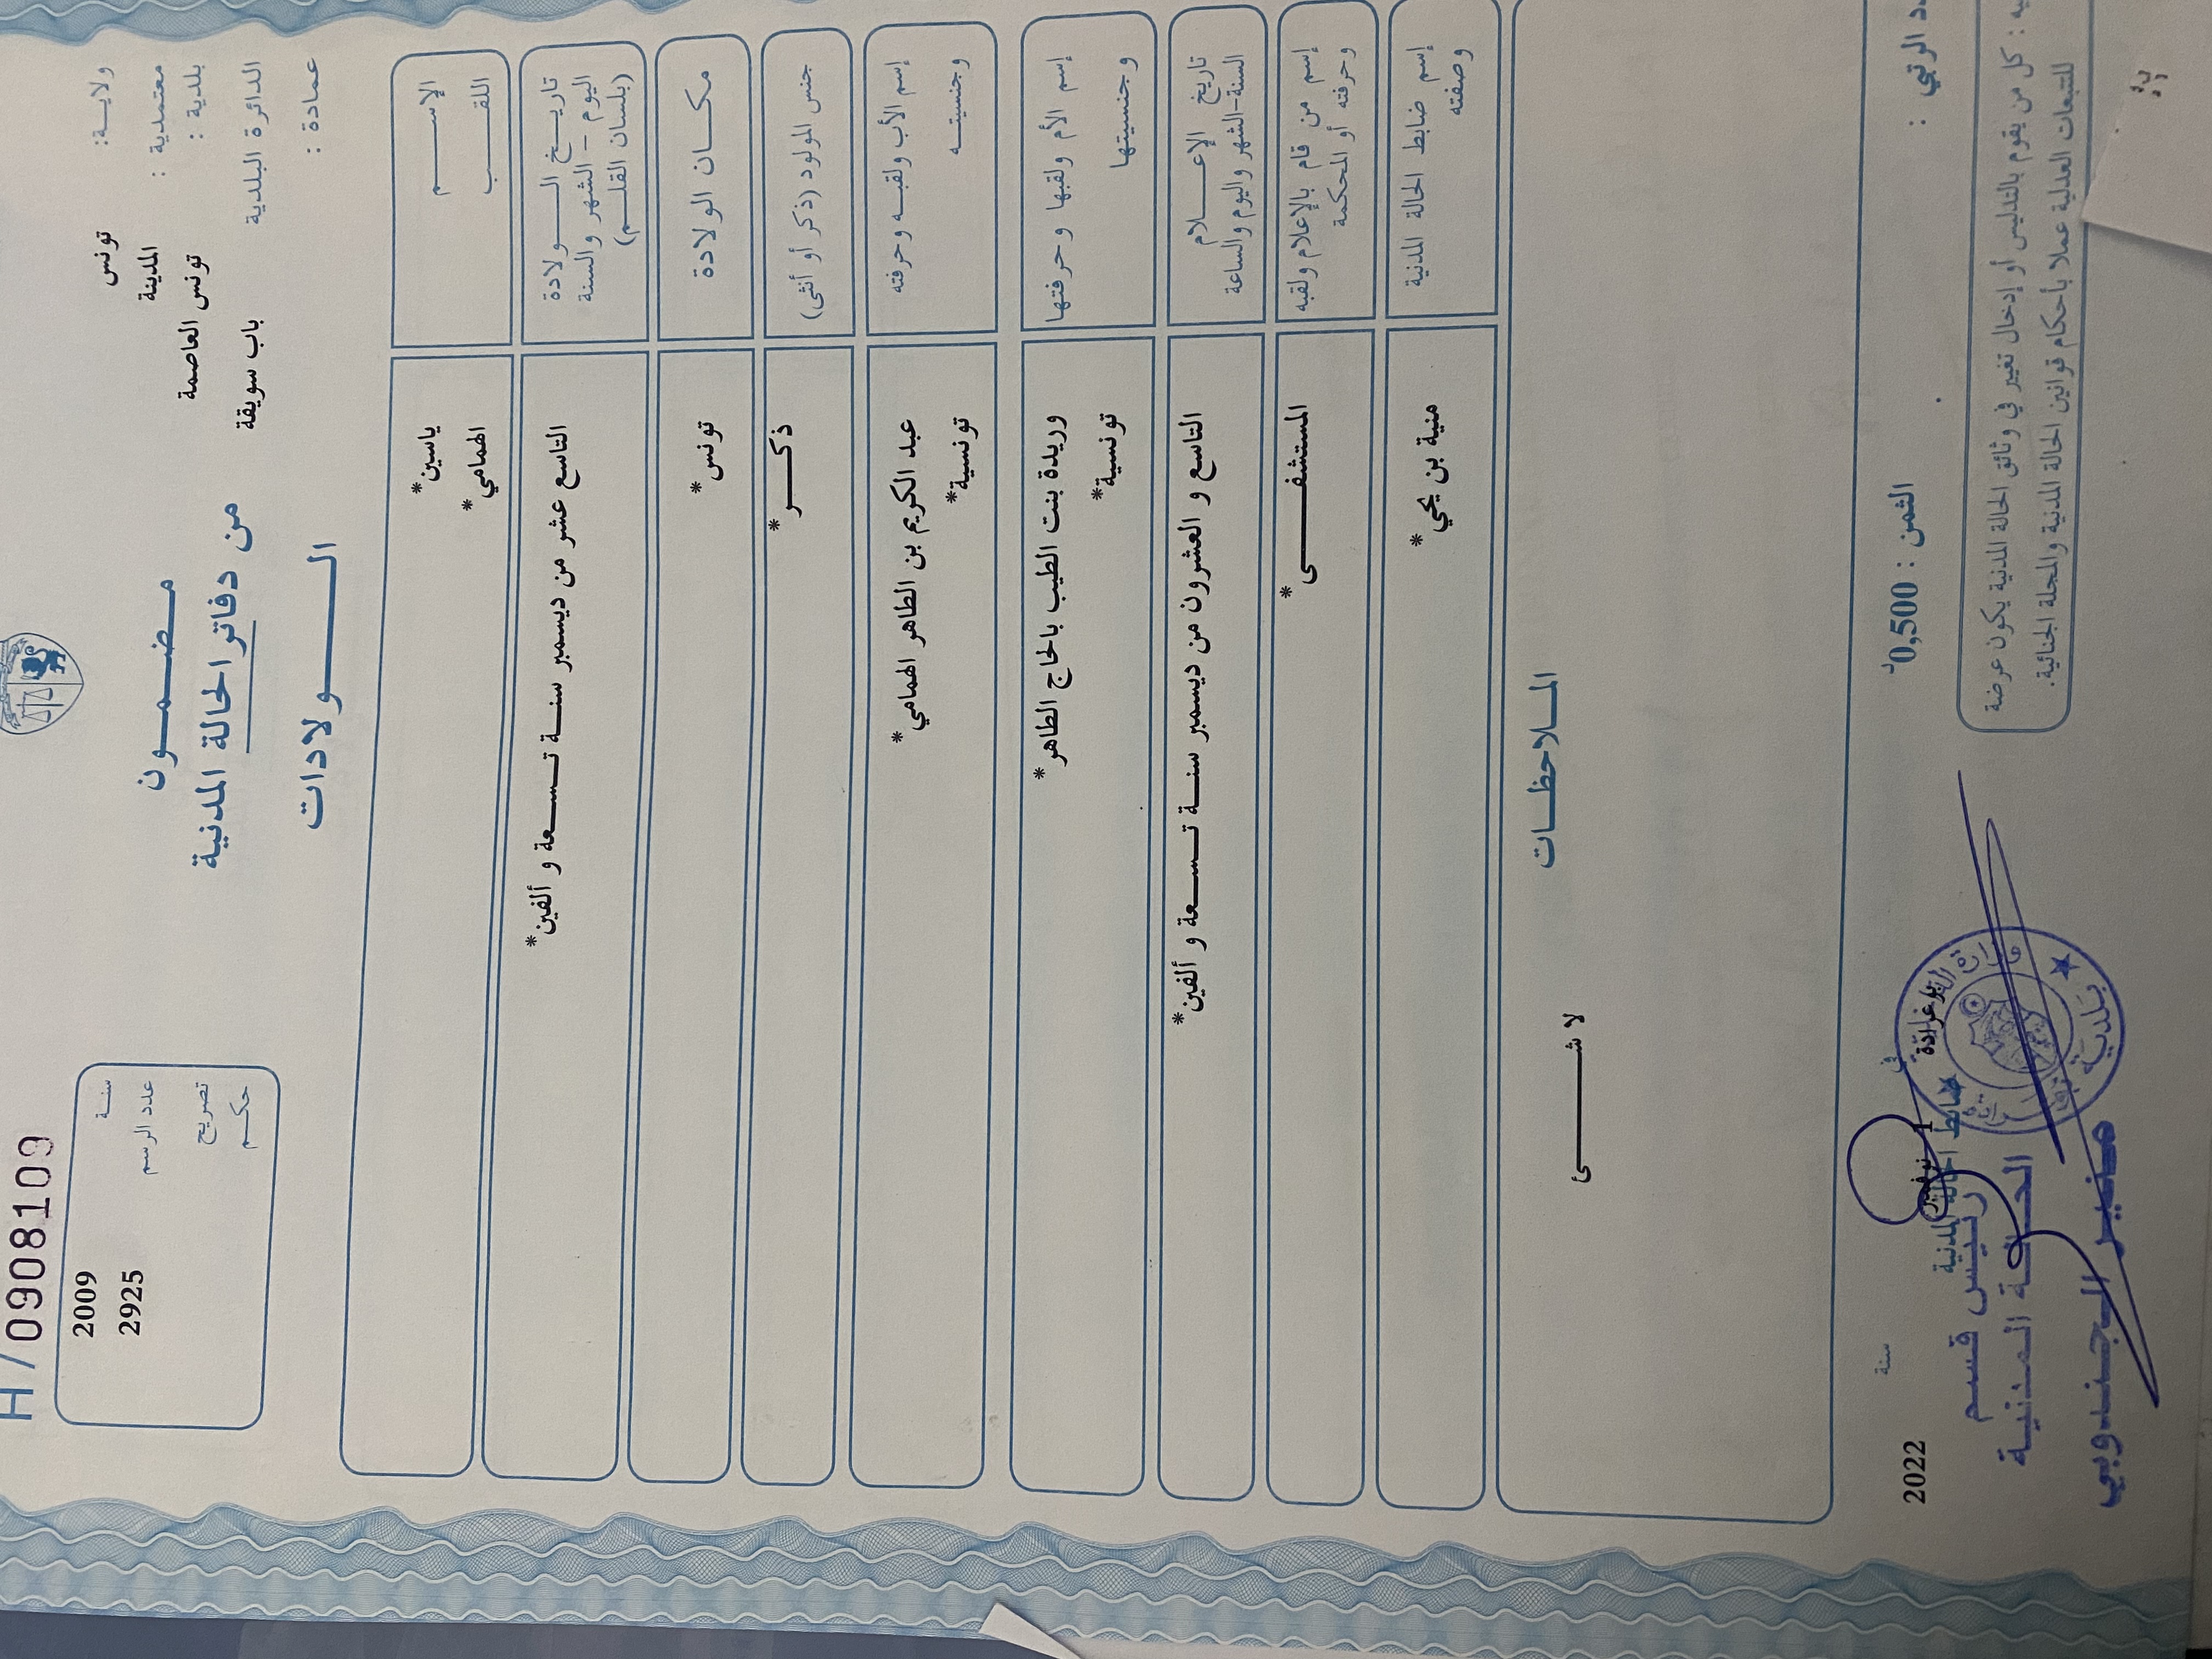 H/0908109
ولايـة: تونس
معتمدية : المدينة
بلدية : تونس العاصمة
الدائرة البلدية باب سويقة
عمادة :
مـضـمـون
من دفاتر الحالة المدنية
الـــولادات
سنـة 2009
عدد الرسم 2925
تصريح
حكـم
الإســـم ياسين*
اللقـــب الهمامي*
تاريـخ الـــولادة
اليوم - الشهر والسنة
(بلسان القلـم)
التاسع عشر من ديسمبر سنـة تـسـعة و ألفين*
مكـان الولادة تونس*
جنس المولود (ذكر أو أنثى) ذكـــر*
إسم الأب ولقبـه وحرفته عبد الكريم بن الطاهر الهمامي*
وجنسيتـه تونسية*
إسم الأم ولقبها وحرفتها وريدة بنت الطيب بالحاج الطاهر*
وجنسيتها تونسية*
تاريخ الإعـــلام
السنة-الشهر واليوم والساعة
التاسع و العشرون من ديسمبر سنـة تـسـعة و ألفين*
إسم من قام بالإعلام ولقبه
وحرفته أو المحكمة
المستشفـــى*
إسم ضابط الحالة المدنية
وصفته
منية بن يحي*
المـلاحظـات
لا شـــئ
الثمن : 0,500د
: كل من يقوم بالتدليس أو إدخال تغيير في وثائق الحالة المدنية يكون عرضة
للتتبعات العدلية عملا بأحكام قوانين الحالة المدنية والمجلة الجنائية.
بوعرادة في
1 نوفمبر سنة 2022
ضابط الحالة المدنية
رئيس قسم
الحـالـة المـدنيـة
منير الجندوبي
بلدية